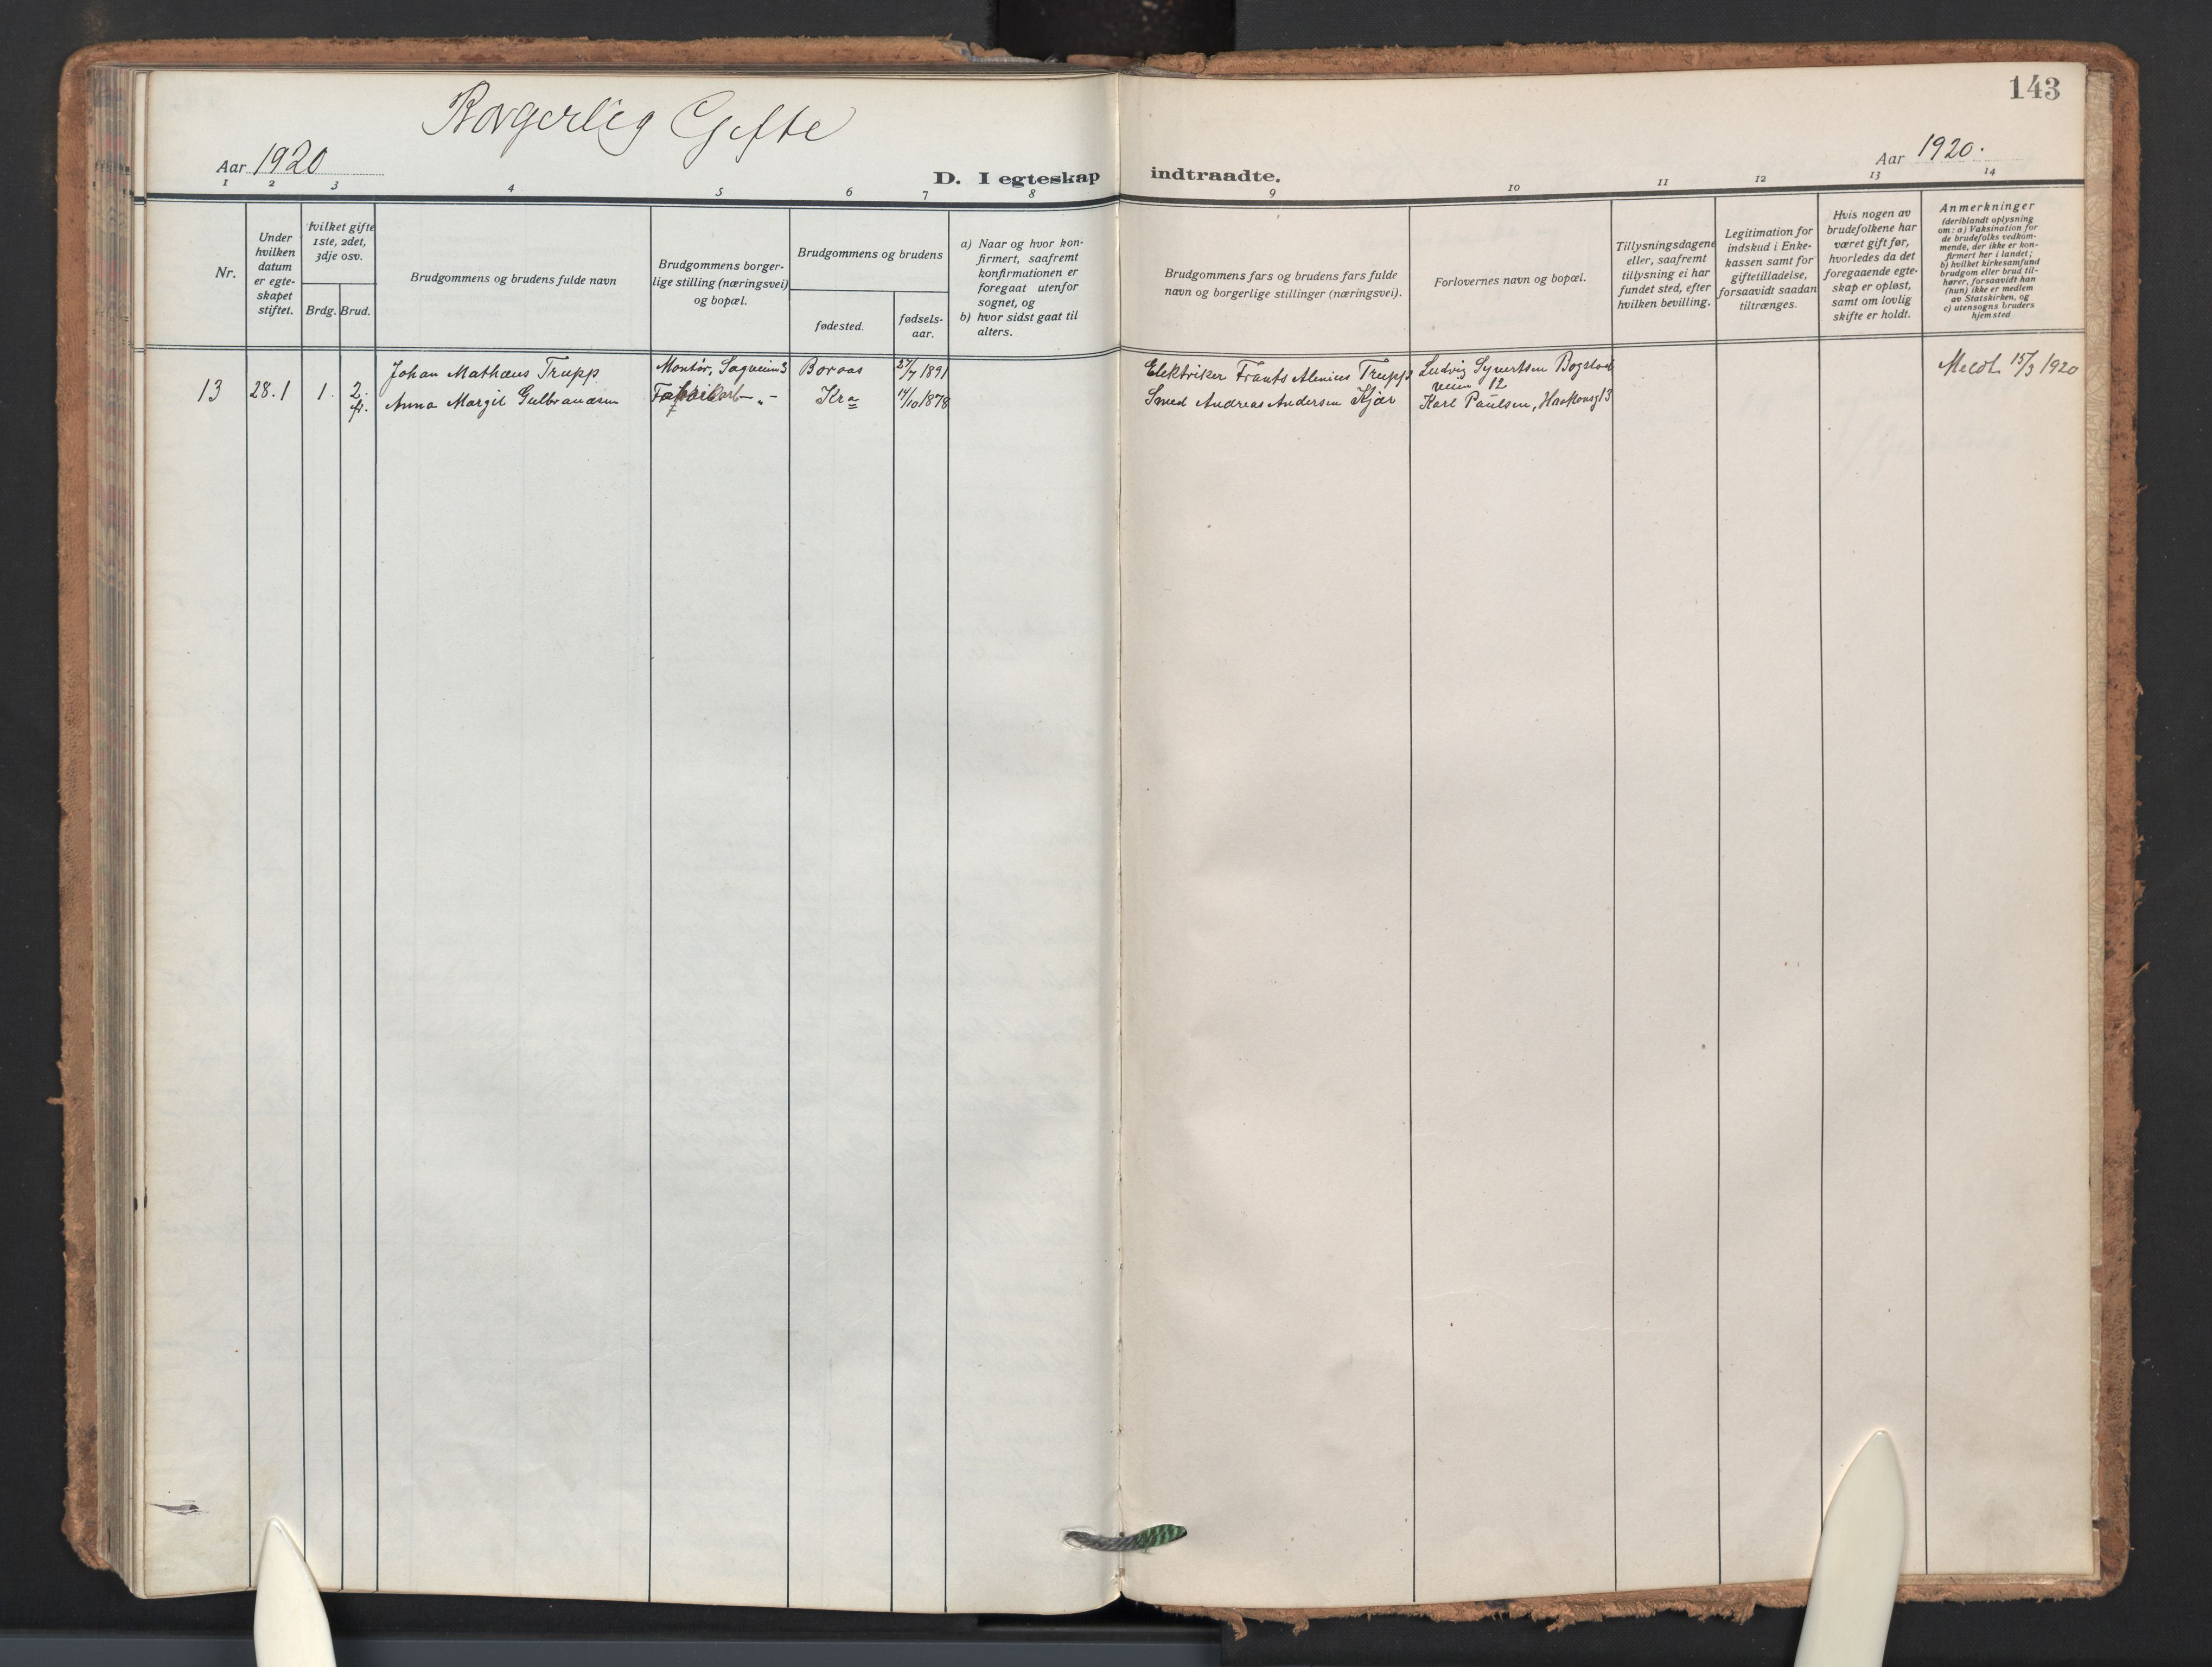 Borgerlig Gifte
143
Aar 1920
Aar 1920.
D. I egteskap indtraadte.
1 2 3 4 5 6 7 8 9 10 11 12 13 14
Nr.
Under
hvilken
datum
er egte-
skapet
stiftet.
hvilket gifte
1ste, 2det,
3dje osv.
Brdg. Brud.
Brudgommens og brudens fulde navn
Brudgommens borger-
lige stilling (næringsvei)
og bopæl.
Brudgommens og brudens
fødested.
fødsels-
aar.
a) Naar og hvor kon-
firmert, saafremt
konfirmationen er
foregaat utenfor
sognet, og
b) hvor sidst gaat til
alters.
Brudgommens fars og brudens fars fulde
navn og borgerlige stillinger (næringsvei).
Forlovernes navn og bopæl.
Tillysningsdagene
eller, saafremt
tillysning ei har
fundet sted, efter
hvilken bevilling.
Legitimation for
indskud i Enke-
kassen samt for
giftetilladelse,
forsaavidt saadan
tiltrænges.
Hvis nogen av
brudefolkene har
været gift før,
hvorledes da det
foregaaende egte-
skap er opløst,
samt om lovlig
skifte er holdt.
Anmerkninger
(deriblandt oplysning
om: a) Vaksination for
de brudefolks vedkom-
mende, der ikke er kon-
firmert her i landet;
b) hvilket kirkesamfund
brudgom eller brud til-
hører, forsaavidt han
(hun) ikke er medlem
av Statskirken, og
c) utensogns bruders
hjemsted
Johan Mathæus Trupp Montør, Sagveien 3 Boraas 27/7 1891 Elektriker Frants Alenius Trupp Ludvig Syvertsen Bogstad Medt. 15/3 1920
veien 12
13 28.1 1. 2. Anna Margit Gulbrandsen Kra 14/10 1878 Smed Andreas Andersen Kjær Karl Paulsen, Haakonsg 13
f.